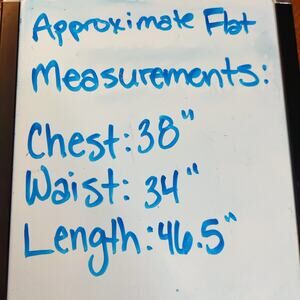 Approximate Flat
Measurements:
Chest: 38"
Waist: 34"
Length: 46.5"